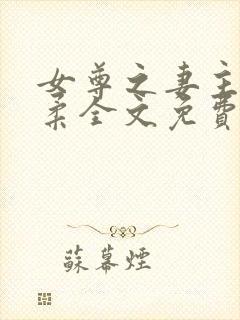 女尊之妻主
柔全文免費
蘇幕煙